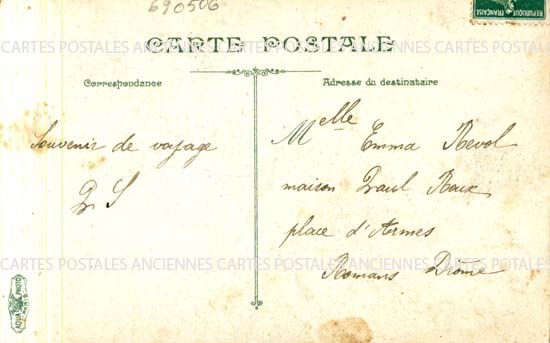 690506
REPUBLIQUE FRANÇAISE
CARTE POSTALE
Correspondance
Adresse du destinataire
Souvenir de voyage
Melle Emma Revol
maison Paul Roux
place d'Armes
Romans Drôme
CARTES POSTALES ANCIENNES CARTES POSTALES ANCIENNES CARTES POSTALES
CARTES POSTALES ANCIENNES CARTES POSTALES ANCIENNES CARTES POSTALES
AQUA PHOTO